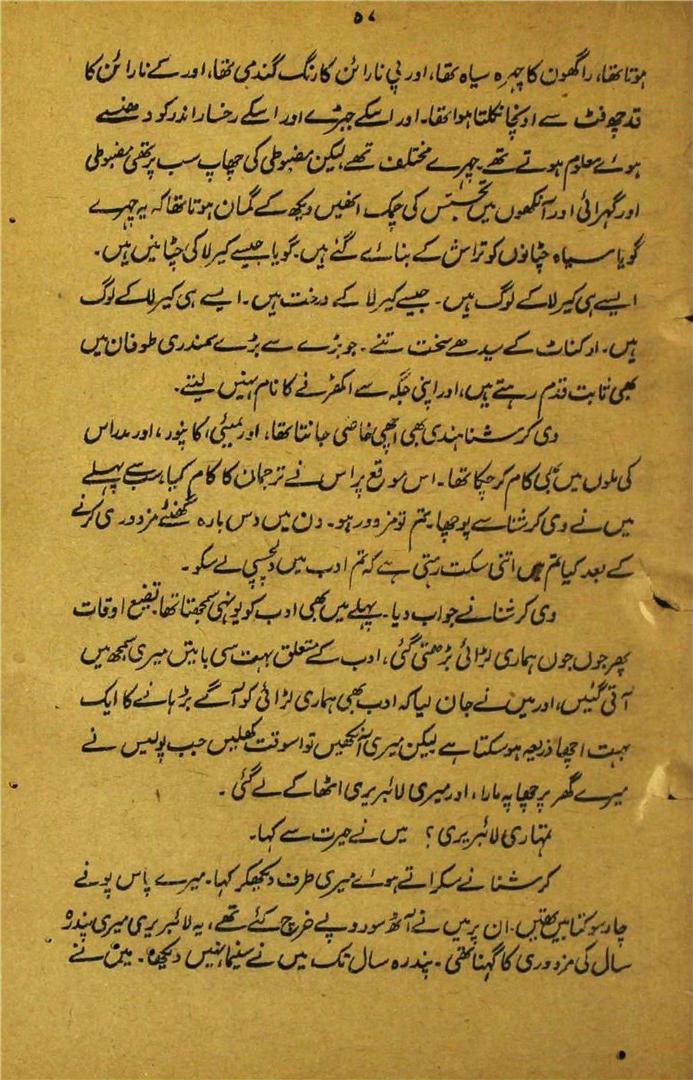 ۵۷
ہوتا تھا، راگھون کا چہرہ سیاہ تھا، اور پی نارائن کا رنگ گندمی تھا، اور کے نارائن کا
قد چھ فٹ سے اونچا نکلتا ہوا تھا۔ اور اسکے جبڑے اور اسکے رخسار اندر کو دھنسے
ہوئے معلوم ہوتے تھے۔ چہرے مختلف تھے لیکن مضبوطی کی چھاپ سب پر تھی مضبوطی
اور گہرائی اور آنکھوں میں تجسّس کی چمک انھیں دیکھ کے گمان ہوتا تھا کہ یہ چہرے
گویا سیاہ چٹانوں کو تراش کے بنائے گئے ہیں۔ گویا جیسے کیرلا کی چٹانیں ہیں۔
ایسے ہی کیرلا کے لوگ ہیں۔ جیسے کیرلا کے درخت ہیں۔ ایسے ہی کیرلا کے لوگ
ہیں۔ اوکناٹ کے سیدھے سخت تنے۔ جو بڑے سے بڑے سمندری طوفان میں
بھی ثابت قدم رہتے ہیں، اور اپنی جگہ سے اکھڑنے کا نام نہیں لیتے۔
وی کرشنا ہندی بھی اچھی خاصی جانتا تھا، اور بمبئی، کانپور، اور مدراس
کی ملوں میں بھی کام کر چکا تھا۔ اس موقع پر اس نے ترجمان کا کام کیا، سب سے پہلے
میں نے وی کرشنا سے پوچھا۔ تم تو مزدور ہو۔ دن میں دس بارہ گھنٹے مزدوری کرنے
کے بعد کیا تم میں اتنی سکت رہتی ہے کہ تم ادب میں دلچسپی لے سکو۔
وی کرشنا نے جواب دیا۔ پہلے میں بھی ادب کو یونہی سمجھتا تھا۔ تضیع اوقات
پھر جوں جوں ہماری لڑائی بڑھتی گئی، ادب کے متعلق بہت سی باتیں میری سمجھ میں
آتی گئیں، اور میں نے جان لیا کہ ادب بھی ہماری لڑائی کو آگے بڑہانے کا ایک
بہت اچھا ذریعہ ہو سکتا ہے لیکن میری آنکھیں تو اسوقت کھلیں جب پولیس نے
میرے گھر پر چھاپہ مارا، اور میری لائبریری اٹھا کے لے گئی۔
تمہاری لائبریری؟ میں نے حیرت سے کہا۔
کرشنا نے مسکراتے ہوئے میری طرف دیکھکر کہا۔ میرے پاس پونے
چار سو کتابیں تھیں۔ ان پر میں نے آٹھ سو روپے خرچ کئے تھے، یہ لائبریری میری پندرہ
سال کی مزدوری کا گہنا تھی۔ پندرہ سال تک میں نے سنیما نہیں دیکھا۔ میں نے